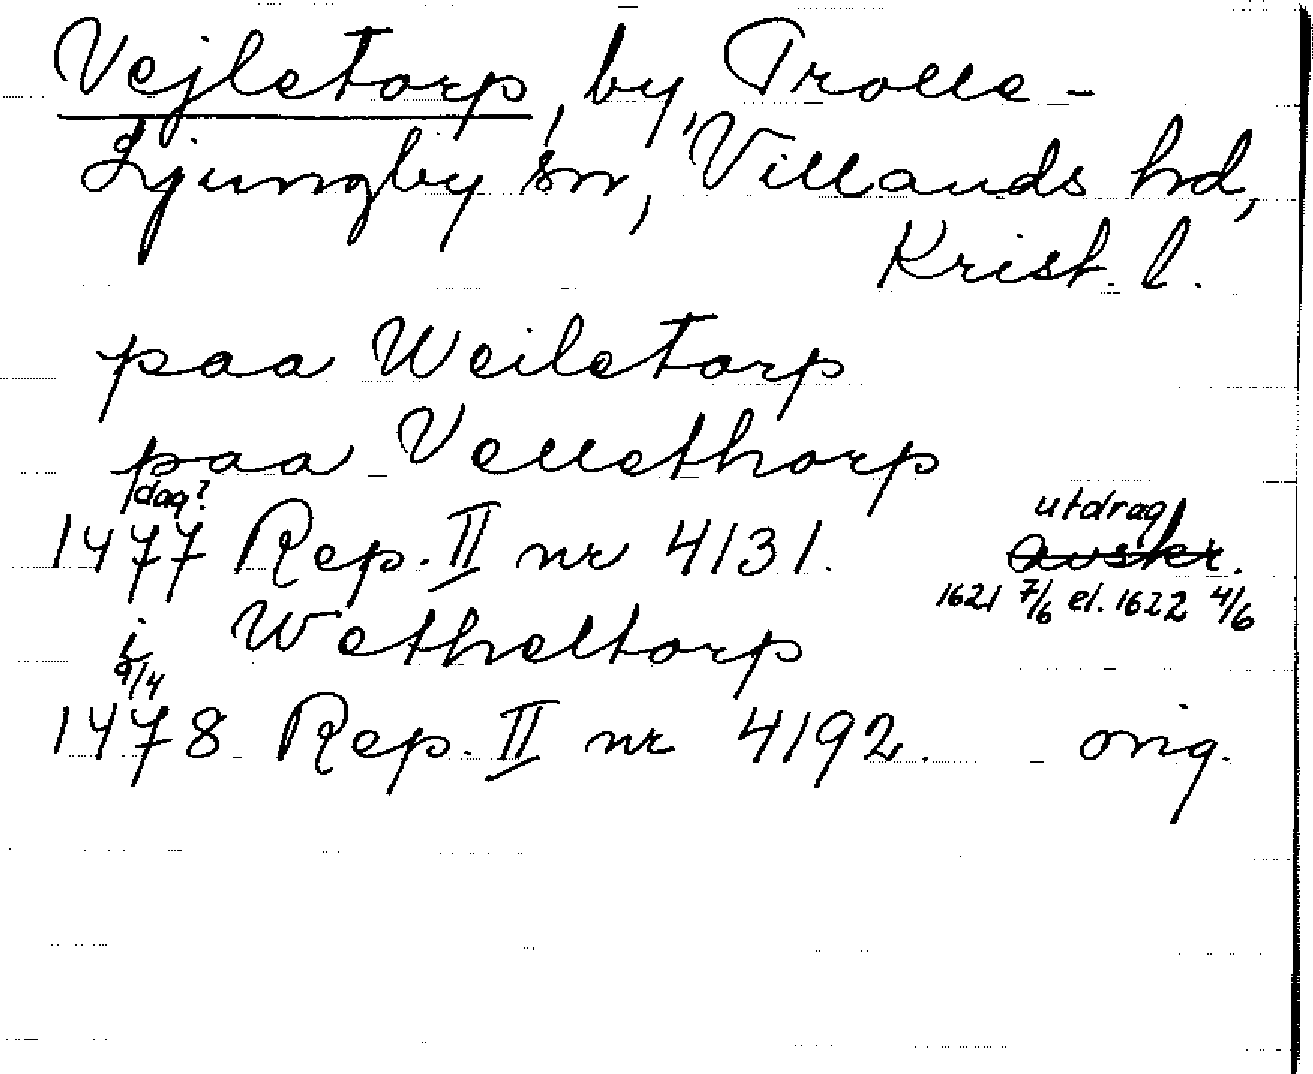 Vejletorp, by, Trolle-
Ljungby sn, Villands hd,
Krist. l.
paa Weiletorp
paa Vellethorp
dag? utdrag
1477 Rep. II nr 4131. avskr.
1621 7/6 el. 1622 4/6
i Wetheltorp
9/4
1478 Rep. II nr 4192. orig.